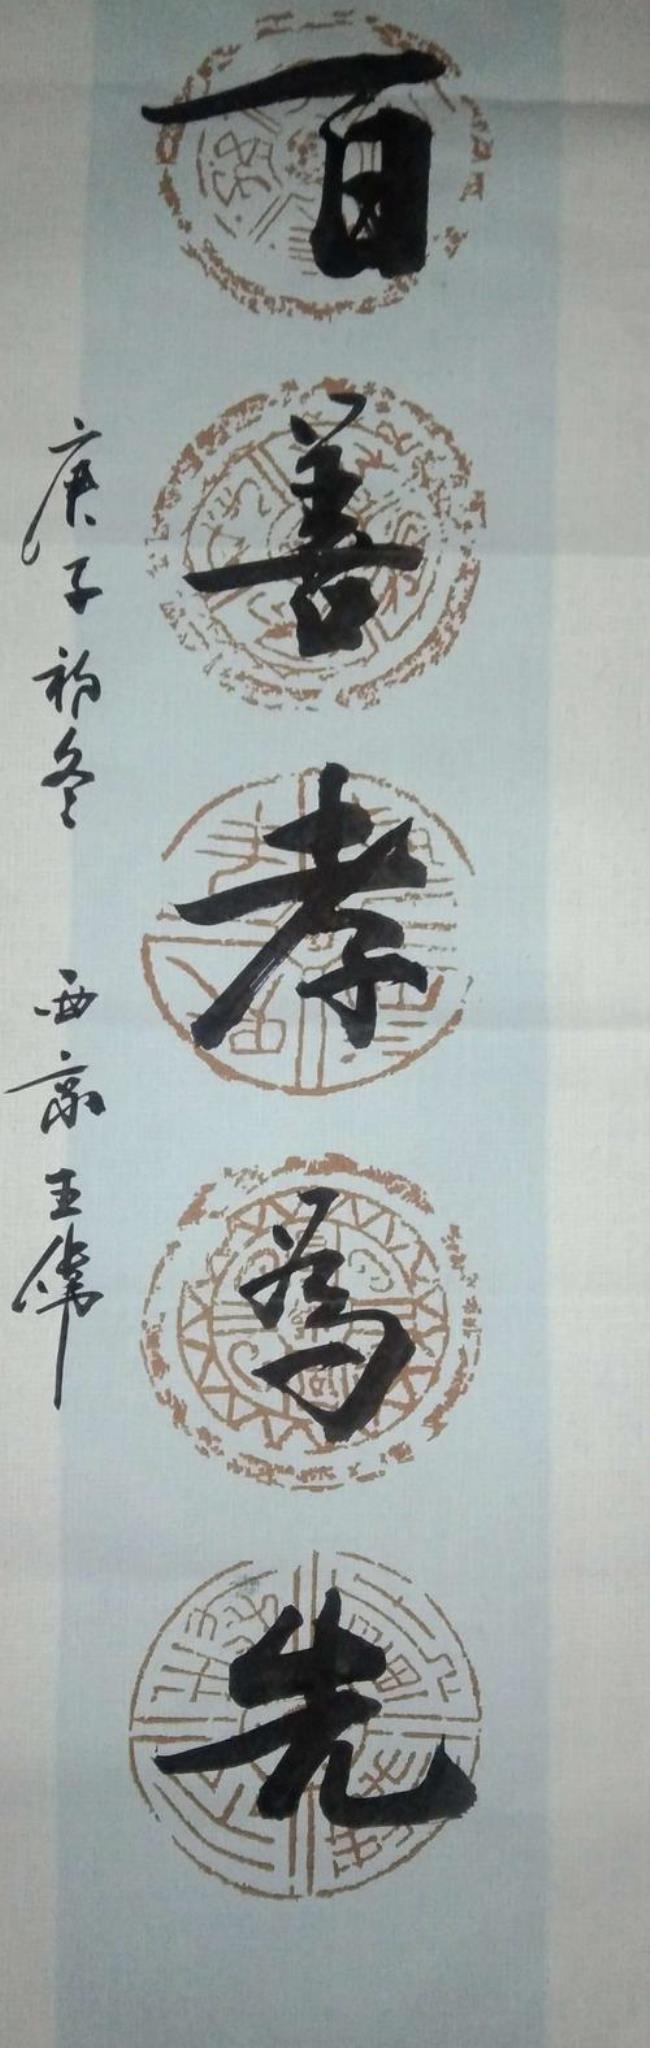 百善孝為先
庚子初冬 西京王偉